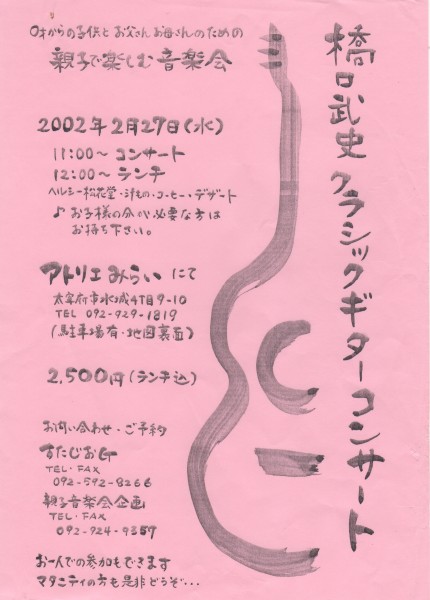 橋口武史クラシックギターコンサート
0才からの子供とお父さんお母さんのための
親子で楽しむ音楽会
2002年2月27日(水)
11:00〜コンサート
12:00〜ランチ
ヘルシー松花堂・汁もの・コーヒー・デザート
♪お子様の分が必要な方は
お持ち下さい。
アトリエみらいにて
太宰府市水城4丁目9-10
TEL 092-929-1819
(駐車場有・地図裏面)
2,500円(ランチ込)
お問い合わせ・ご予約
すたじおG
TEL・FAX
092-592-8266
親子音楽会企画
TEL・FAX
092-924-9357
お一人での参加もできます
マタニティの方も是非どうぞ・・・